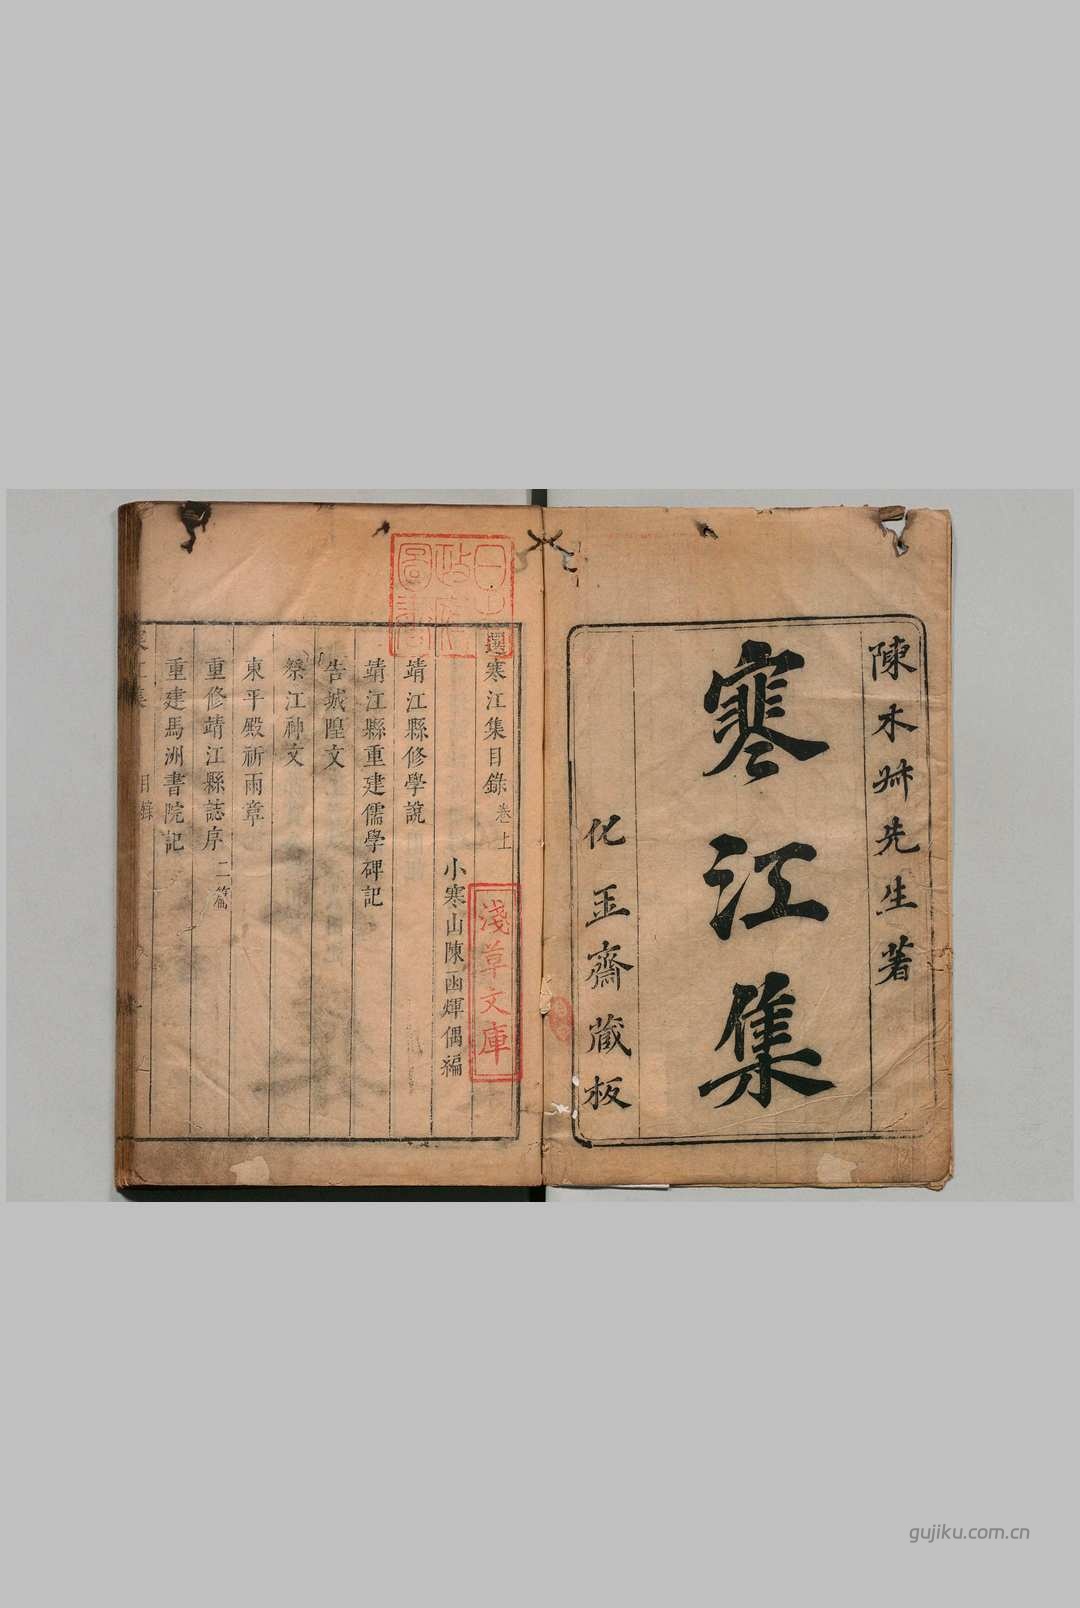 陳木叔先生著
寒江集
化玉齋藏板
選寒江集目錄 卷上
小寒山陳函煇偶編
靖江縣修學說
靖江縣重建儒學碑記
告城隍文
祭江神文
東平殿祈雨章
重修靖江縣誌序 二篇
重建馬洲書院記
寒江集 目錄
淺草文庫
gujiku.com.cn